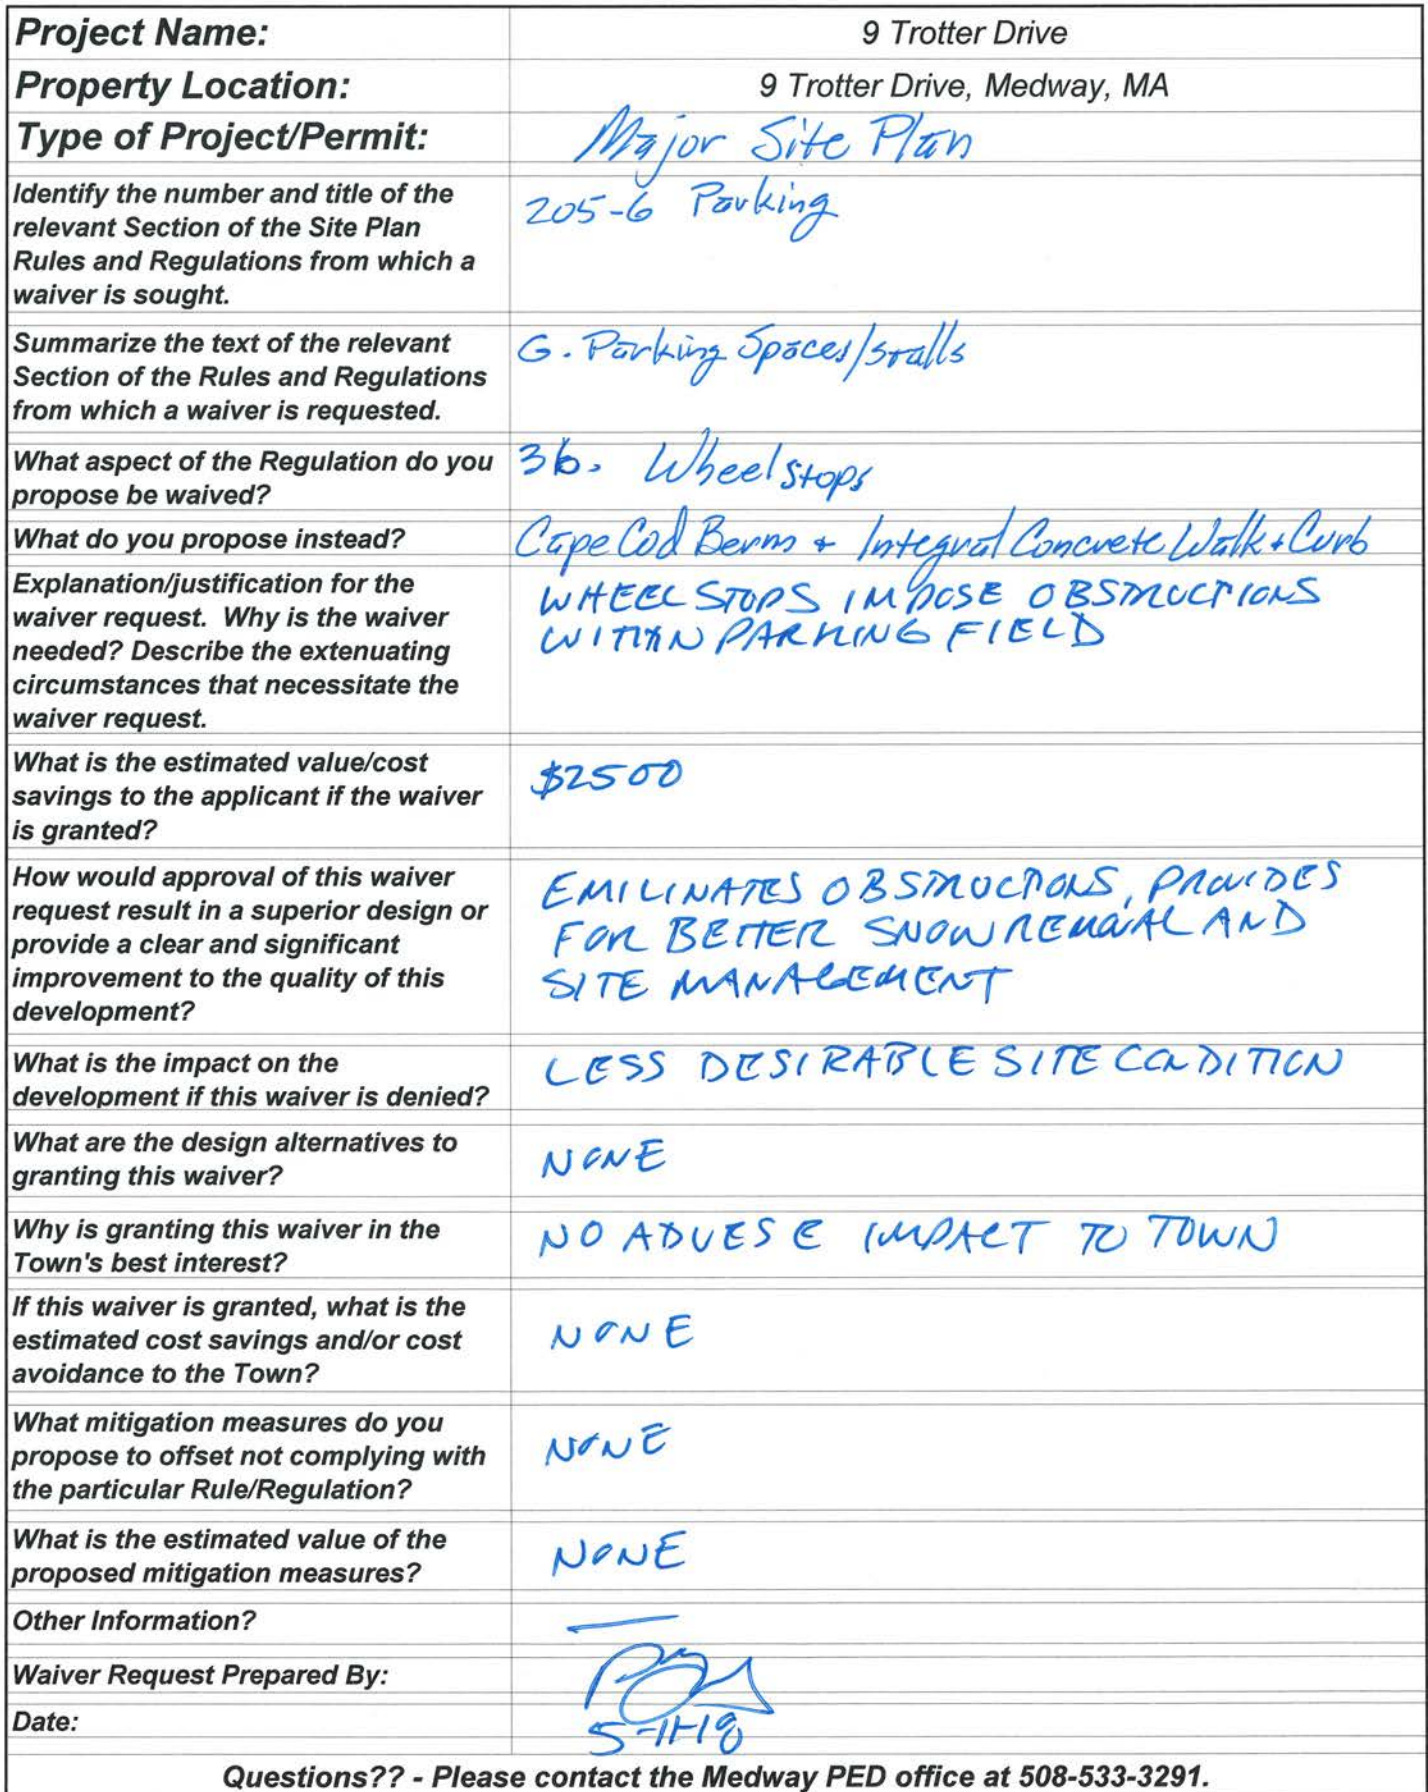 Project Name: 9 Trotter Drive
Property Location: 9 Trotter Drive, Medway, MA
Type of Project/Permit: Major Site Plan
Identify the number and title of the
relevant Section of the Site Plan
Rules and Regulations from which a
waiver is sought.
205-6 Parking
Summarize the text of the relevant
Section of the Rules and Regulations
from which a waiver is requested.
G. Parking Spaces/stalls
What aspect of the Regulation do you
propose be waived?
3b. Wheelstops
What do you propose instead? Cape Cod Berm + Integral Concrete Walk + Curb
Explanation/justification for the
waiver request. Why is the waiver
needed? Describe the extenuating
circumstances that necessitate the
waiver request.
WHEEL STOPS IMPOSE OBSTRUCTIONS
WITHIN PARKING FIELD
What is the estimated value/cost
savings to the applicant if the waiver
is granted?
$2500
How would approval of this waiver
request result in a superior design or
provide a clear and significant
improvement to the quality of this
development?
EMILINATES OBSTRUCTIONS, PROVIDES
FOR BETTER SNOW REMOVAL AND
SITE MANAGEMENT
What is the impact on the
development if this waiver is denied?
LESS DESIRABLE SITE CONDITION
What are the design alternatives to
granting this waiver?
NONE
Why is granting this waiver in the
Town's best interest?
NO ADVESE IMPACT TO TOWN
If this waiver is granted, what is the
estimated cost savings and/or cost
avoidance to the Town?
NONE
What mitigation measures do you
propose to offset not complying with
the particular Rule/Regulation?
NONE
What is the estimated value of the
proposed mitigation measures?
NONE
Other Information? —
Waiver Request Prepared By:
Date: 5-11-18
Questions?? - Please contact the Medway PED office at 508-533-3291.